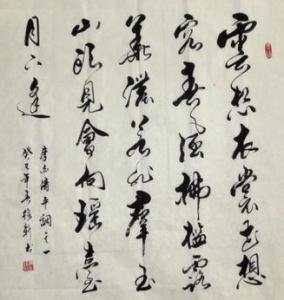 雲想衣裳花想
容春風拂檻露
華濃若非羣玉
山頭見會向瑤臺
月下逢
李白清平調之一
癸巳年春書